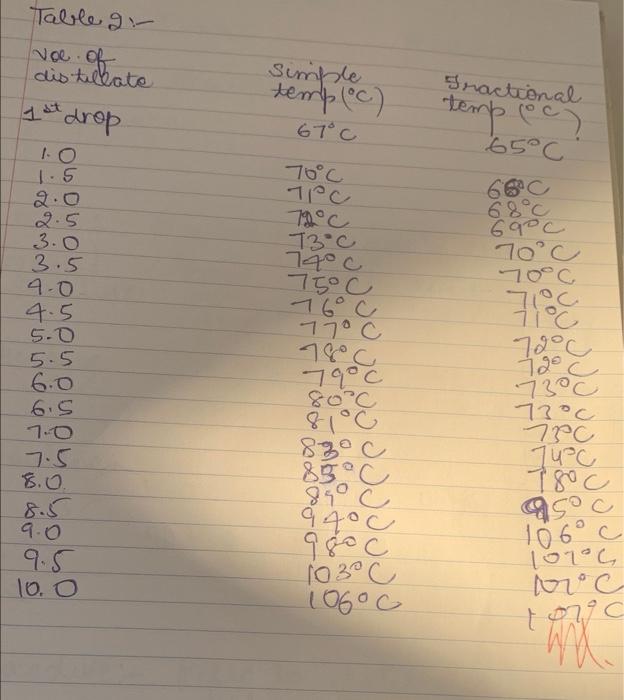 Table 2:-
Vol. of distillate simple temp (°C) Fractional temp (°C)
1st drop 67°C 65°C
1.0 70°C 66°C
1.5 71°C 68°C
2.0 72°C 69°C
2.5 73°C 70°C
3.0 74°C 70°C
3.5 75°C 71°C
4.0 76°C 71°C
4.5 77°C 72°C
5.0 78°C 72°C
5.5 79°C 73°C
6.0 80°C 73°C
6.5 81°C 73°C
7.0 83°C 74°C
7.5 85°C 78°C
8.0 89°C 95°C
8.5 94°C 106°C
9.0 98°C 107°C
9.5 103°C 107°C
10.0 106°C 107°C